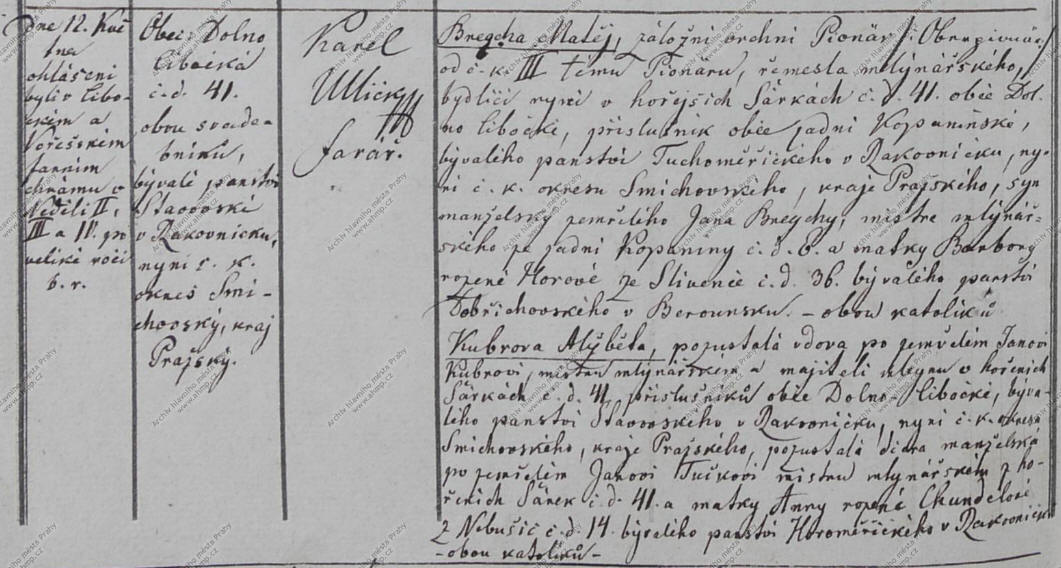 dne 12. Kvě
tna
ohlášeni
byli v Libo-
ckém a
Ořešském
farním
chrámu v
Neděli II,
III a IV. po
veliké noci
b. r.
Obec Dolno
Libocká
č. d. 41.
obou snoube-
bníků,
bývalé panství
Stavovské
v Rakovnicku,
nyní c. k.
okres Smi-
chovský, kraj
Pražský.
Karel
Ullický
farář.
Bregcha Matěj, záložní vrchní Pionár
od c. k. III tému Pionáru, řemesla mlýnářského,
bydlící nyní v hořejších Šárkách č. d. 41. obce Dol-
no libocké, příslušník obce zadní Kopaninské,
bývalého panství Tuchoměřického v Rakovnicku, ny-
ní c. k. okresu Smichovského, kraje Pražského, syn
manželský zemřelého Jana Bregchy, mistra mlýnář-
ského ze zadní Kopaniny č. d. 6. a matky Barbory
rozené Horové ze Slivence č. d. 36. bývalého panství
Dobřichovského v Berounsku. - obou katolíků
Kubrova Alžběta, pozustalá vdova po zemřelém Janovi
Kubrovi, mistru mlynářském a majiteli mlegnu v hořeních
Šárkách č. d. 41, příslušníků obce Dolno-Libocké, býva-
lého panství Stavovského v Rakovnicku, nyní c. k. okresu
Smichovského, kraje Pražského, pozustalá dcera manželská
po zemřelém Janovi Tučkovi mistru mlynářském z ho-
řeních Šárek č. d. 41. a matky Anny rozené Chundelové
z Nebušic č. d. 14. bývalého panství Horoměřického v Rakovnicku
- obou katolíků -
Archiv hlavního města Prahy
www.ahmp.cz